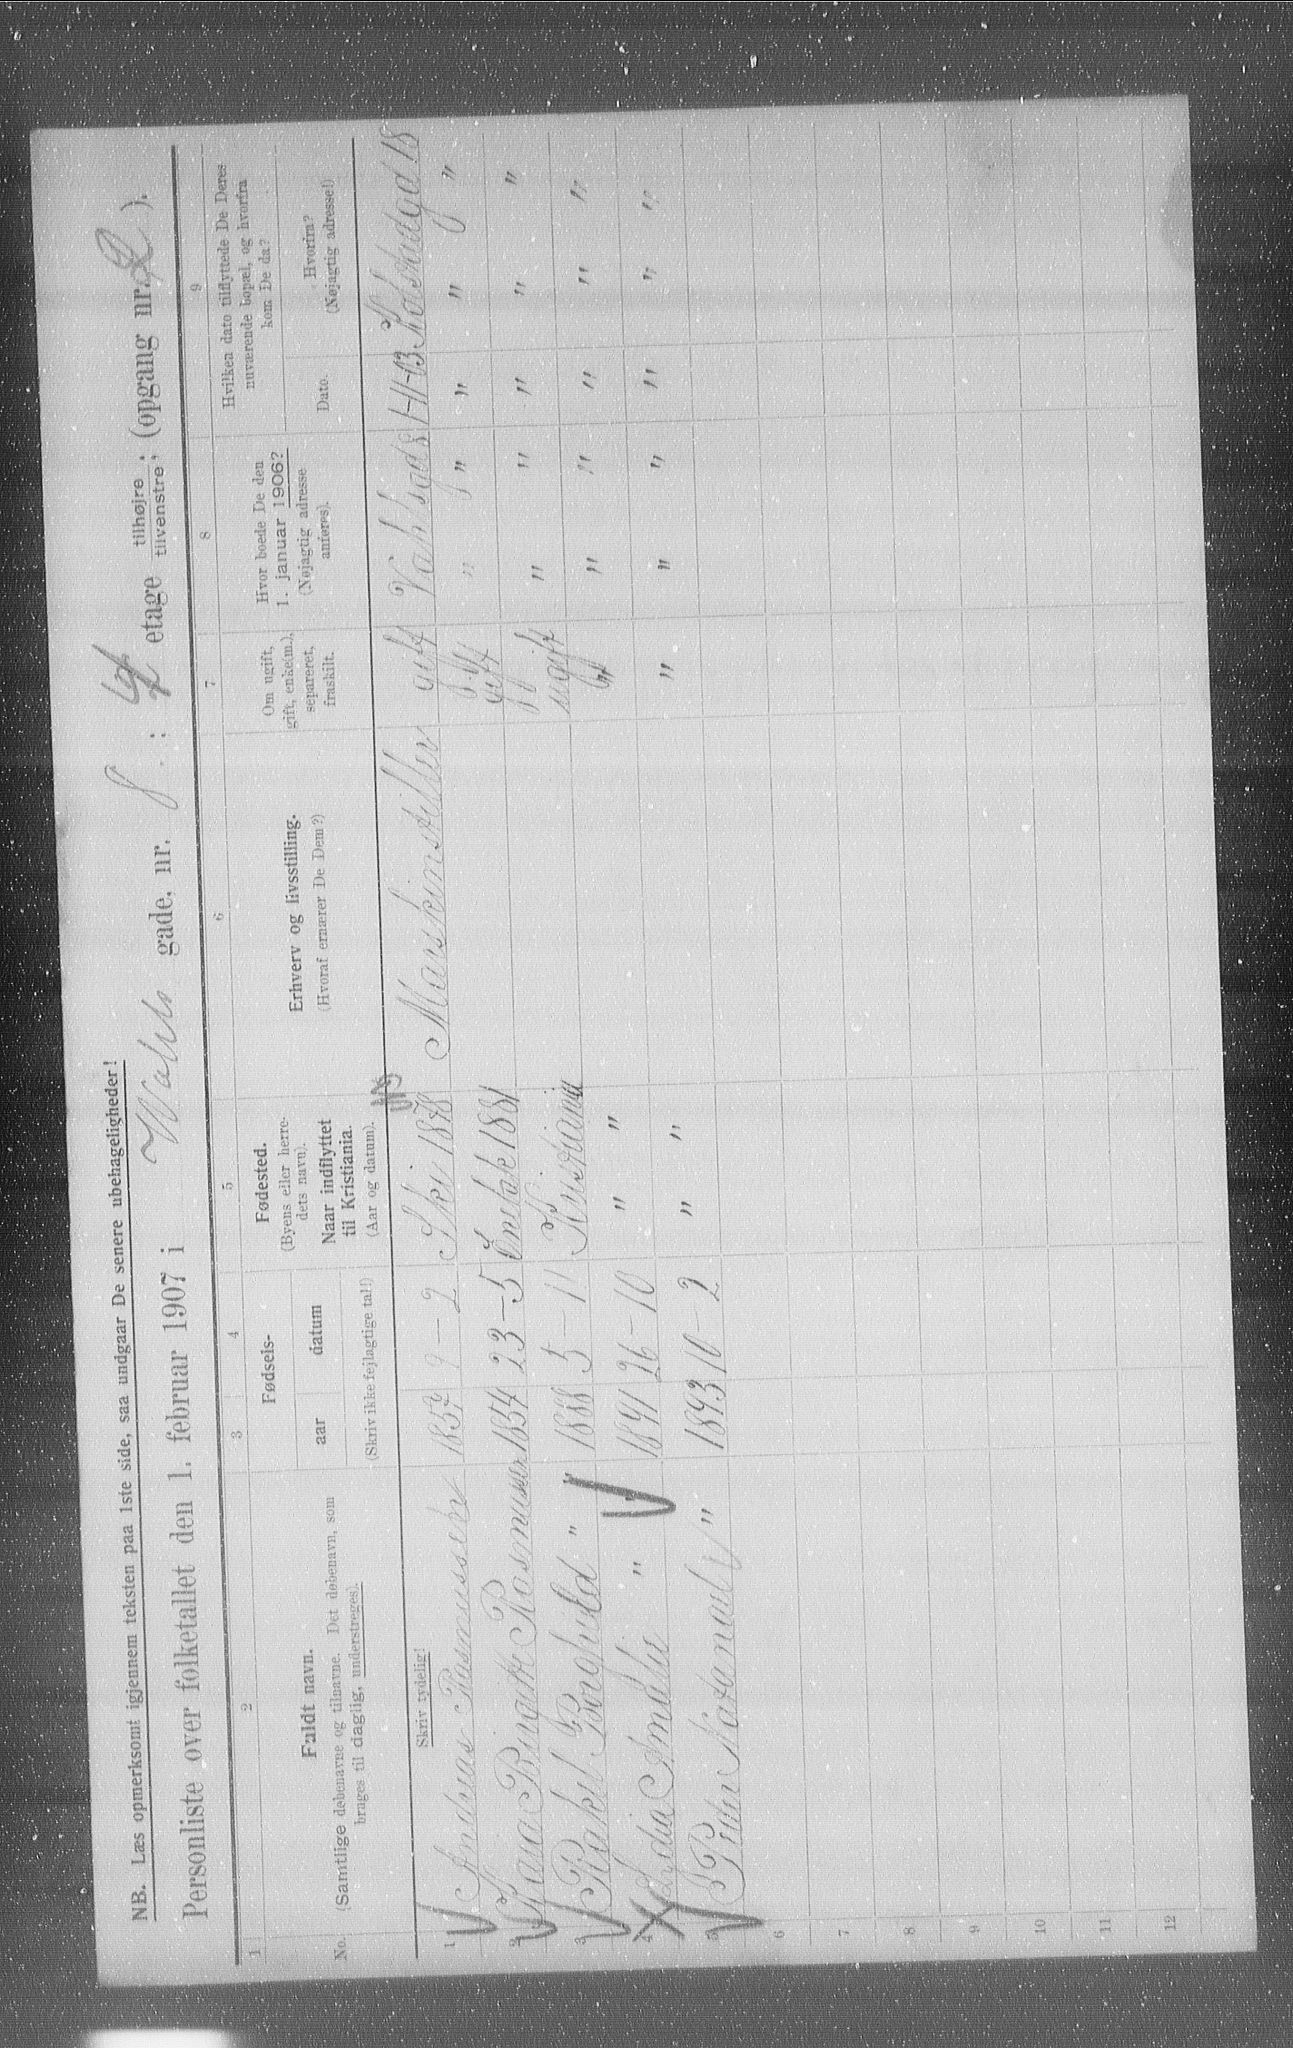 NB. Læs opmerksomt igjennem teksten paa 1ste side, saa undgaar De senere ubehageligheder!
Personliste over folketallet den 1. februar 1907 i Wahls gade, nr. 8 : 4 etage tilhøjre tilvenstre, (opgang nr. 2).
1 2 3 4 5 6 7 8 9
No.
Fuldt navn.
(Samtlige døbenavne og tilnavne. Det døbenavn, som
bruges til daglig, understreges).
Fødsels-
aar
datum
(Skriv ikke fejlagtige tal!)
Fødested.
(Byens eller herre-
dets navn).
Naar indflyttet
til Kristiania.
(Aar og datum).
Erhverv og livsstilling.
(Hvoraf ernærer De Dem?)
Om ugift,
gift, enke(m.),
separeret,
fraskilt.
Hvor boede De den
1. januar 1906?
(Nøjagtig adresse
anføres).
Hvilken dato tilflyttede De Deres
nuværende bopæl, og hvorfra
kom De da?
Dato.
Hvorfra?
(Nøjagtig adresse!)
Skriv tydelig!
1 Andreas Rasmussen 1857 9-2 Ski 1878 Maskinstiller gift Vahlsgd 8 1-11-03 18
2 Birgitte Rasmussen 1854 23-5 Enebak 1881 gift " " " " "
3 Rakel Borghild " " 1888 5-11 Kristiania ugift " " " " "
4 Lydia Amalia " " 1891 26-10 " " " " " " " "
5 Peder Natanael " 1893 10-2 " " " " " " " "
6
7
8
9
10
11
12